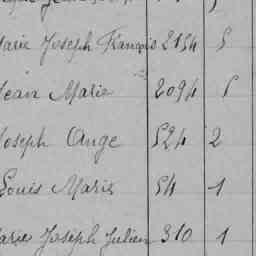 Marie Joseph François 2154 5
Jean Marie 2094
Joseph Ange 524 2
Louis Marie 54 1
Marie Joseph Julien 310 1